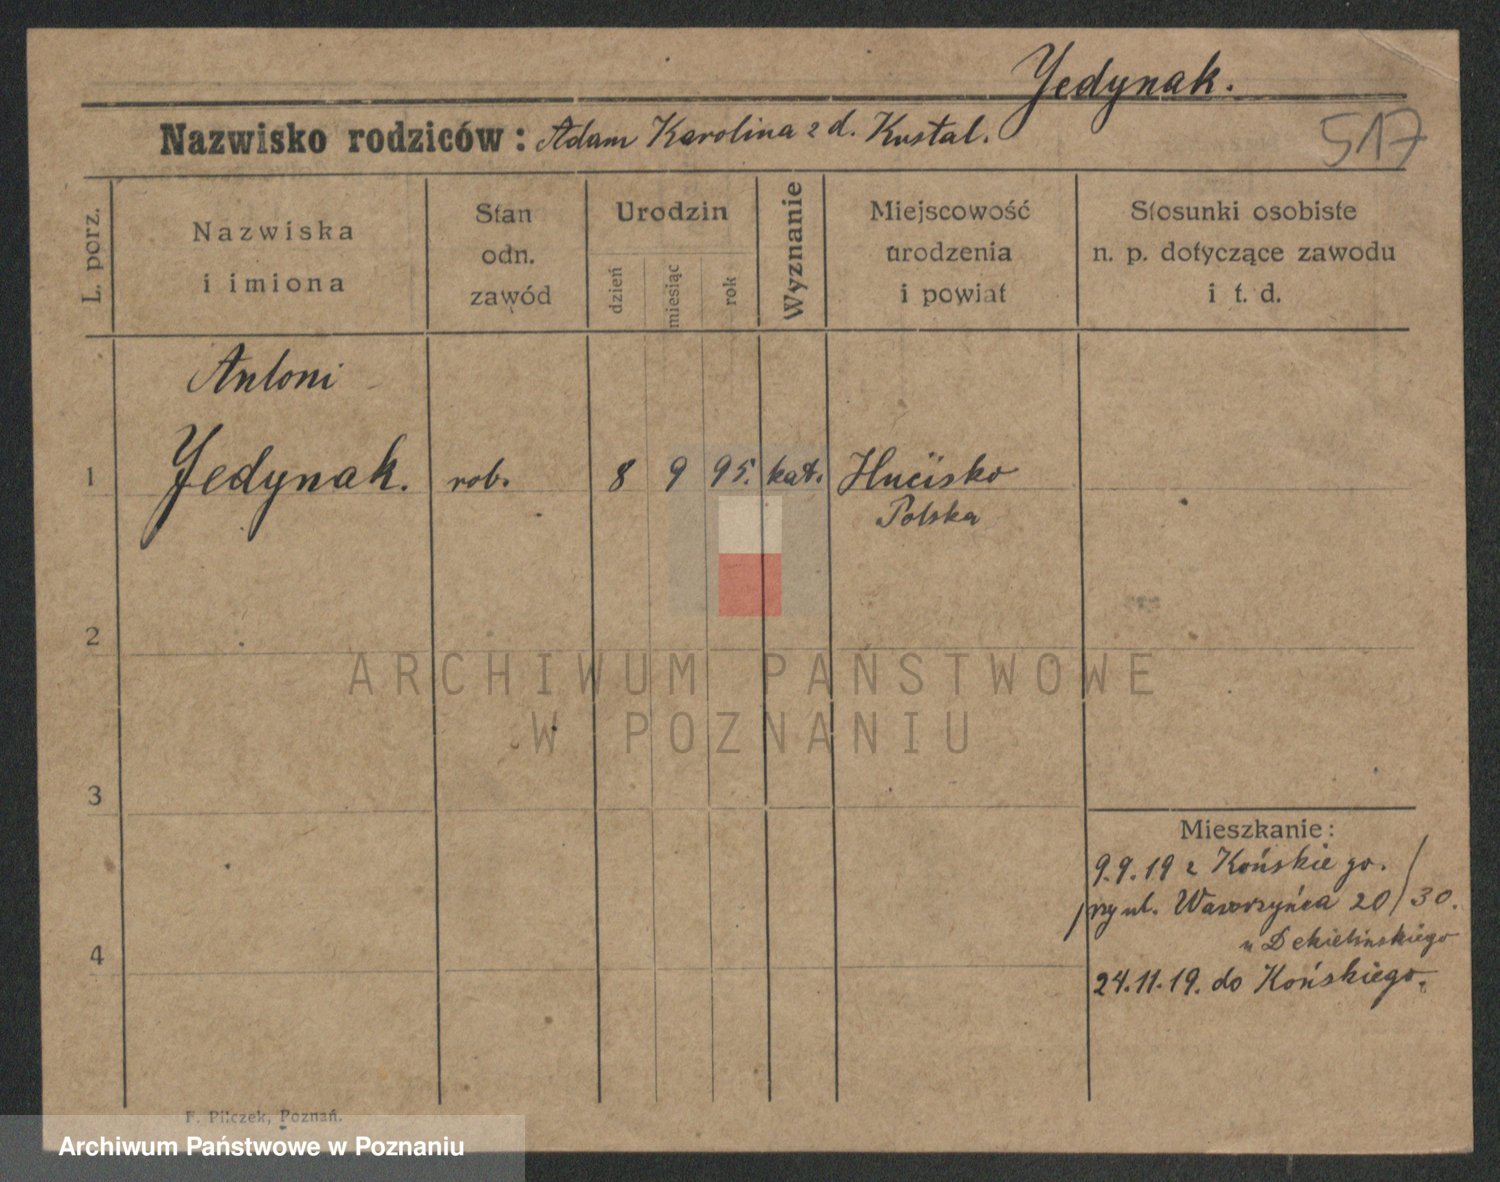 Jedynak.
Nazwisko rodziców: Adam Karolina z d. Kustal.
517
L. porz.
Nazwiska
i imiona
Stan
odn.
zawód
Urodzin
dzień
miesiąc
rok
Wyznanie
Miejscowość
urodzenia
i powiat
Stosunki osobiste
n. p. dotyczące zawodu
i t. d.
Antoni
1 Jedynak. rob. 8 9 95. kat. Hucisko
Polska
2
3
4
Mieszkanie:
9.9.19 z Końskiego.
ul. Wawrzyńca 20/30.
u Dekielinskiego
24.11.19. do Końskiego.
F. Pilczek, Poznań.
ARCHIWUM PAŃSTWOWE
W POZNANIU
Archiwum Państwowe w Poznaniu